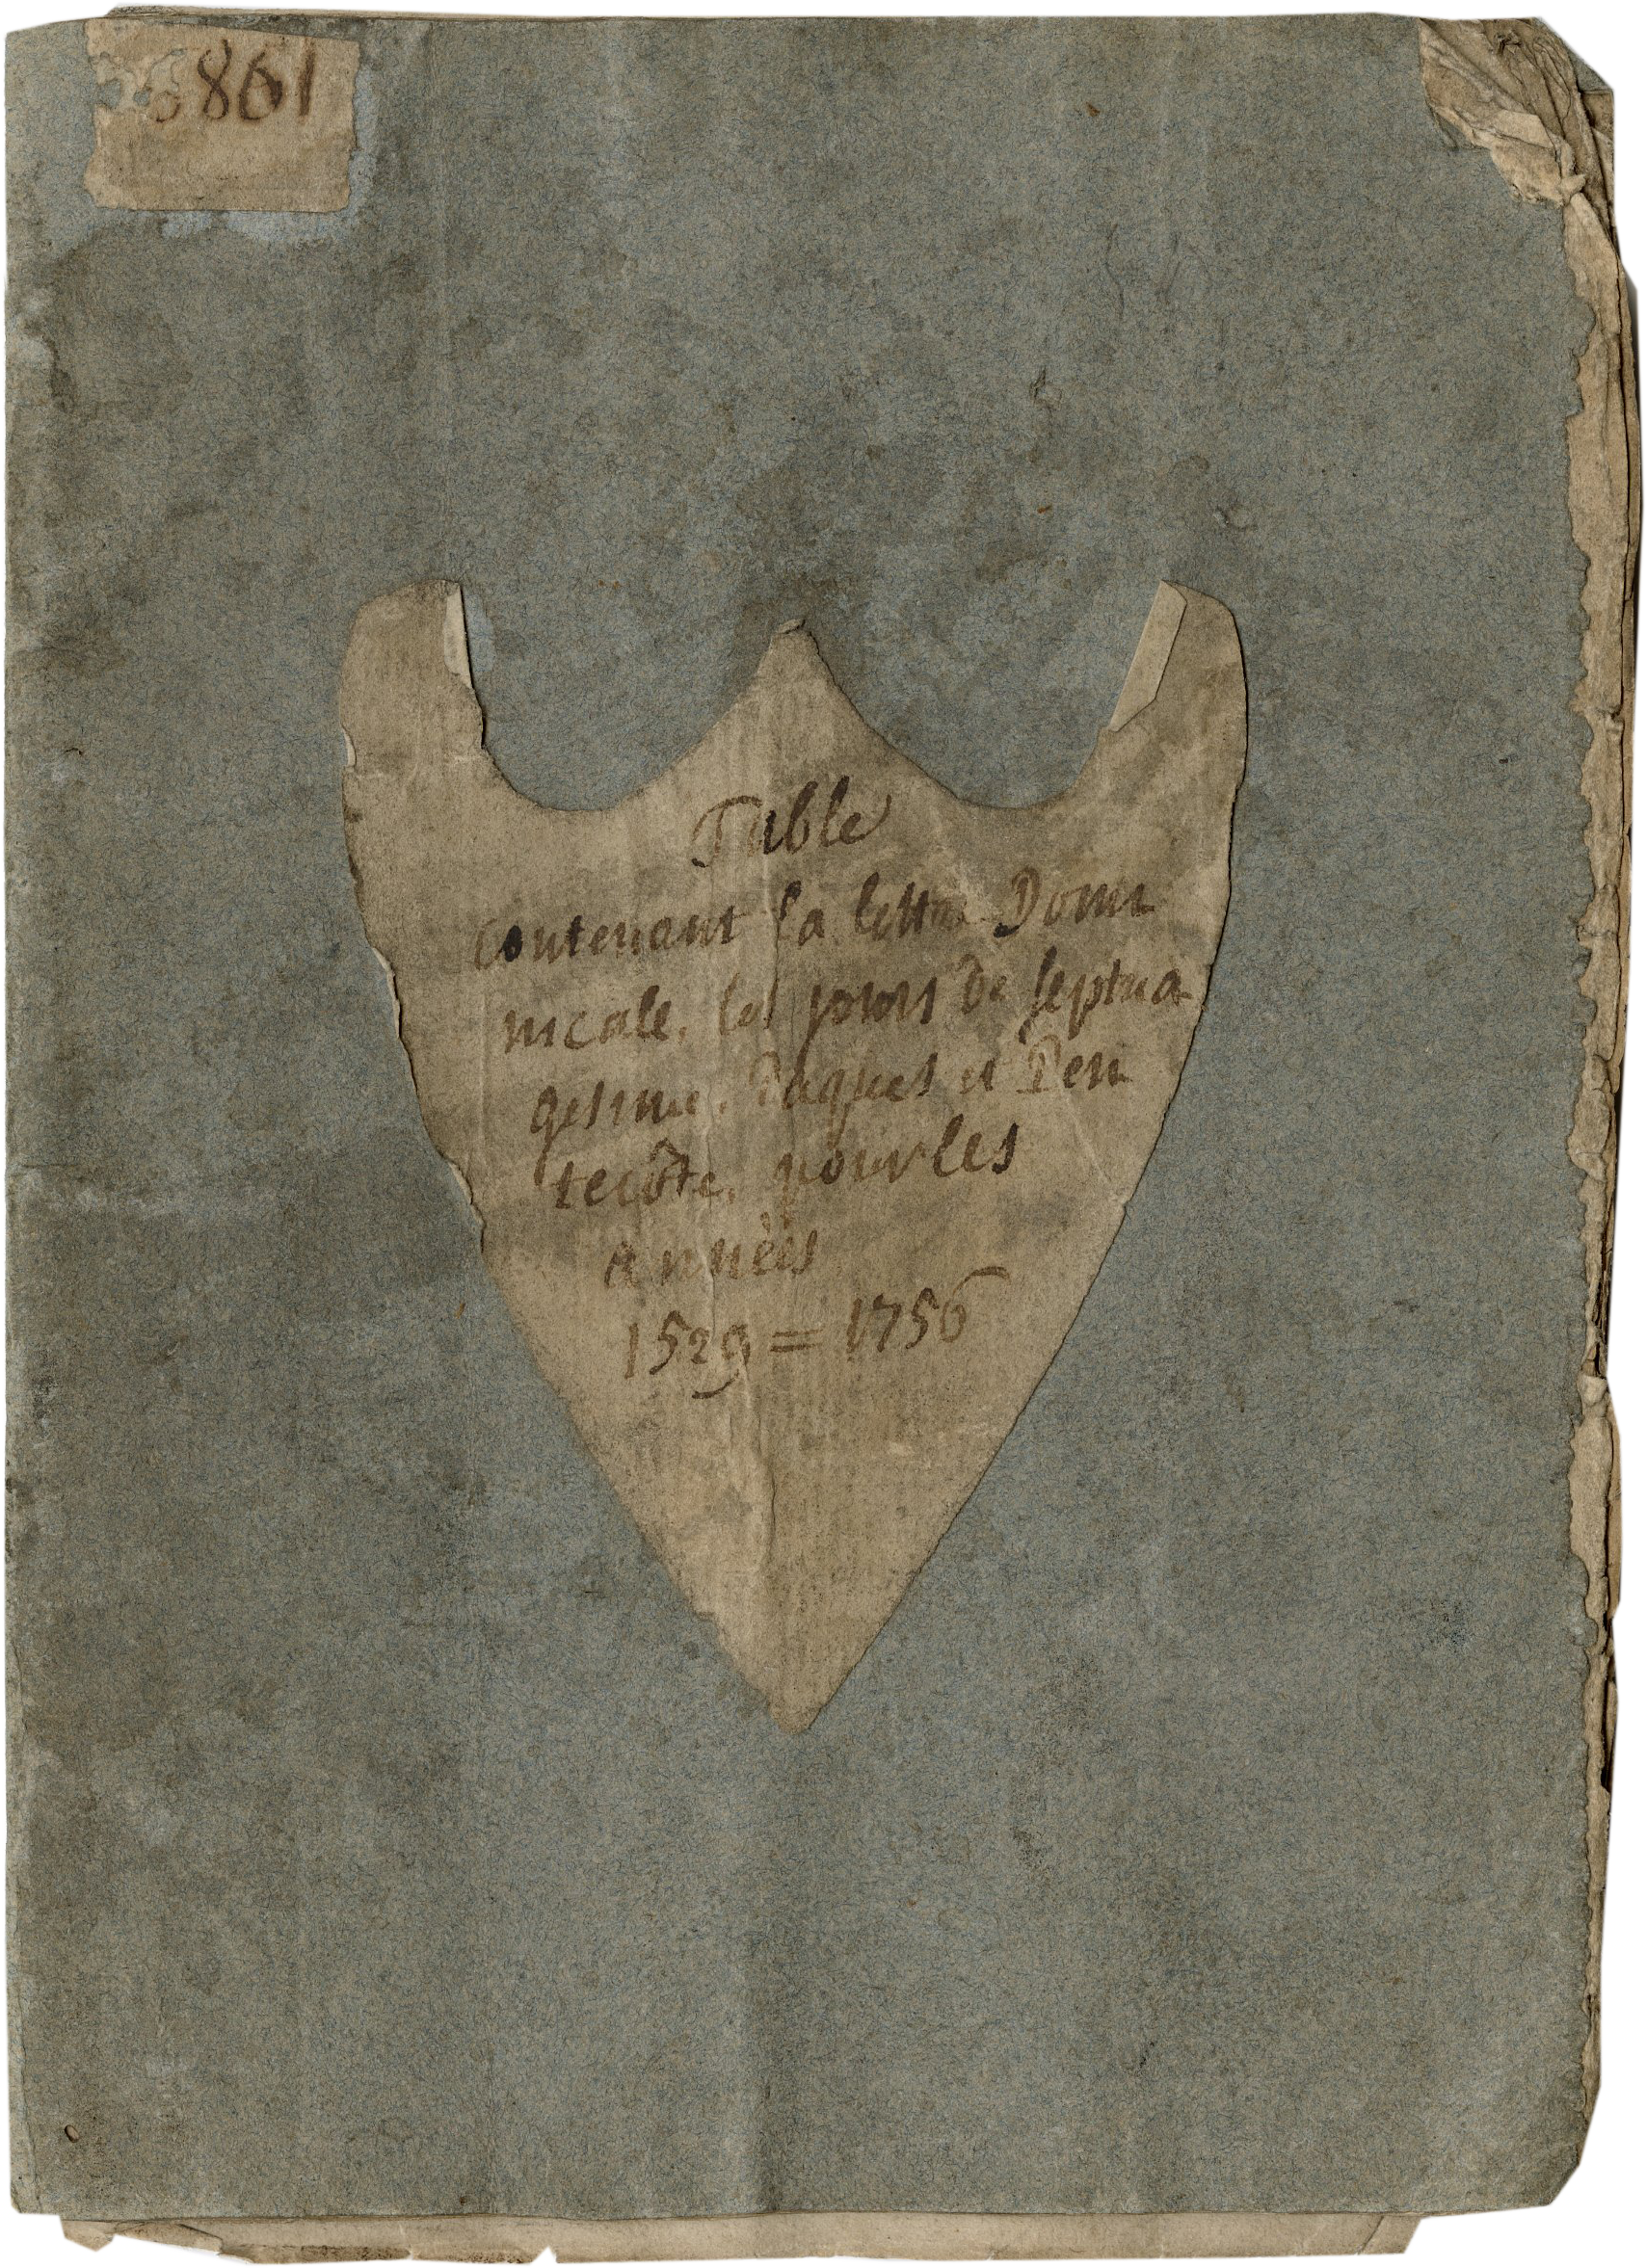 6861
Table
contenant la lettre Domi
nicale, les jours de septua
gesime, Paques et Pen
tecôte, pour les
années
1529 = 1756